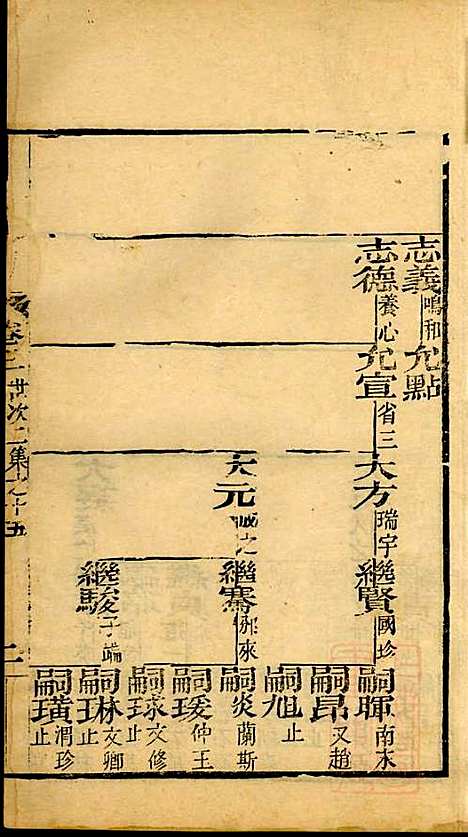 志義 鳴和 允點
志德 養心 允宣 省三 大方 瑞宇 繼賢 國珍 嗣暉 南水
嗣昂 又趙
嗣旭 止
大元 誠之 繼騫 那來 嗣炎 蘭斯
嗣瑗 仲玉
嗣球 文修 止
繼駿 子端 嗣琳 文卿 止
嗣璜 渭珍 止
卷三 世次二集之十五 二